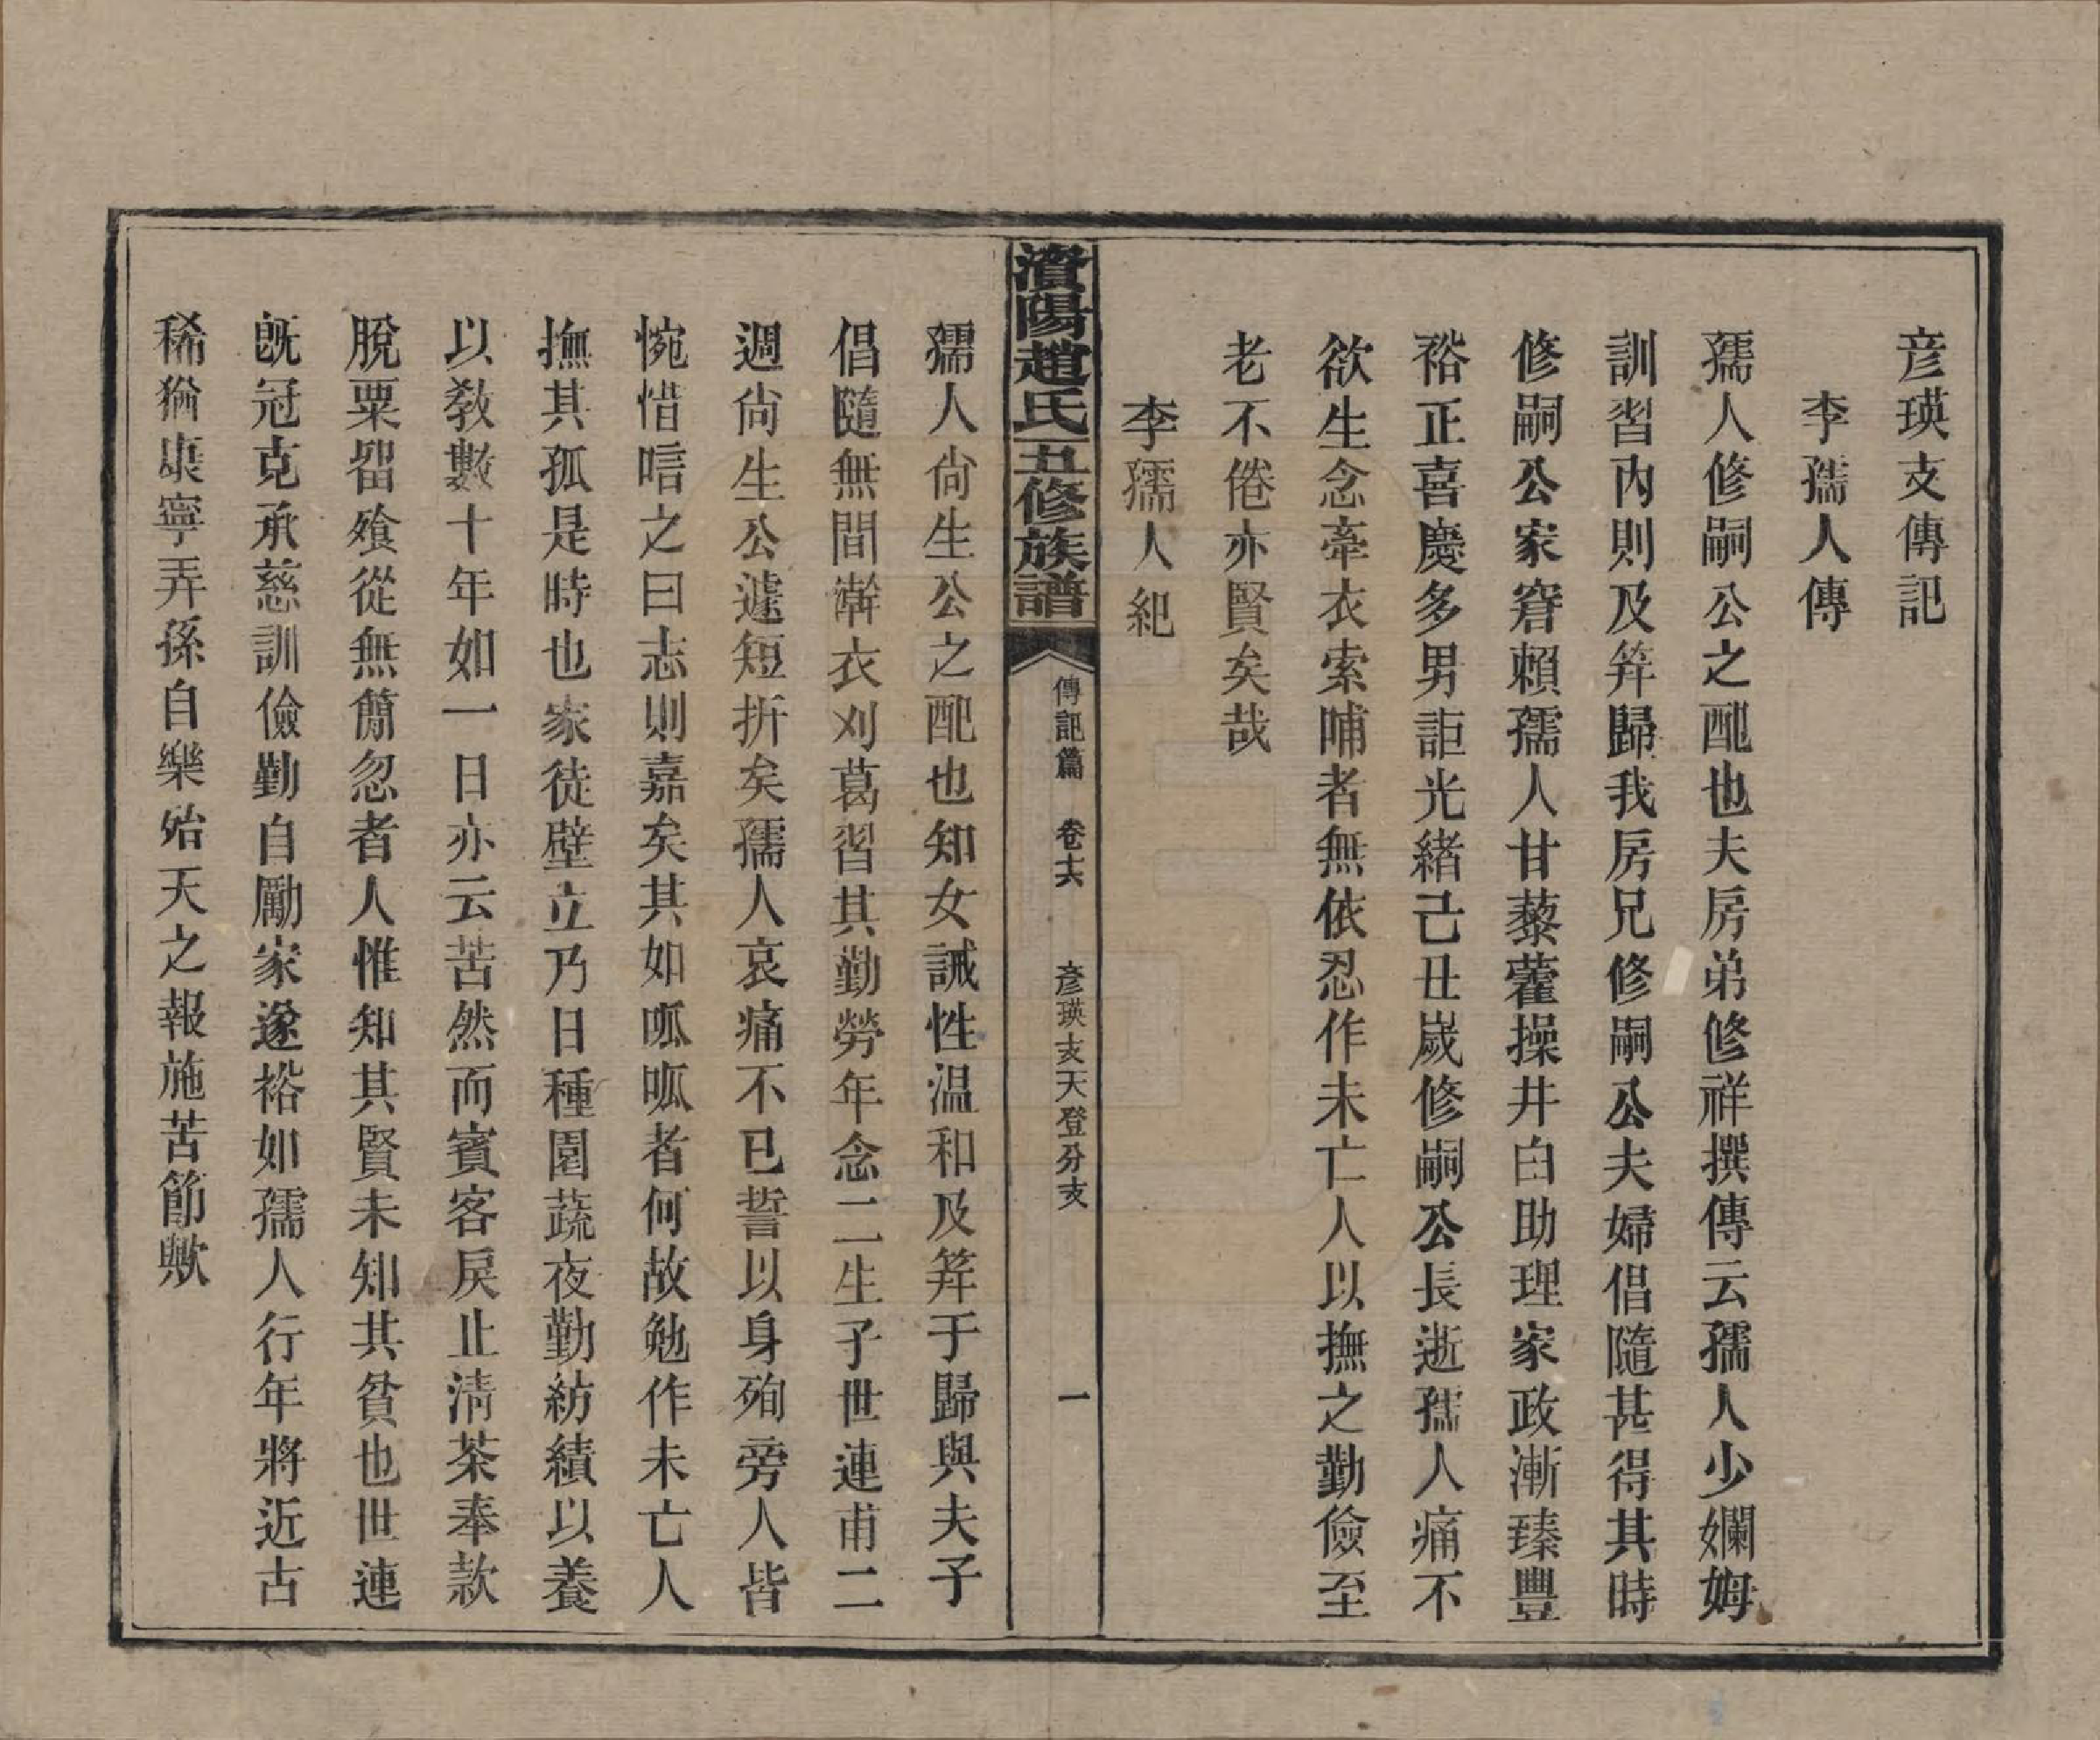 彦瑛支傳記
李孺人傳
孺人修嗣公之配也夫房弟修祥撰傳云孺人少嫻姆
訓習内則及笄歸我房兄修嗣公夫婦倡隨甚得其時
修嗣公家窘賴孺人甘藜藿操井臼助理家政漸臻豐
裕正喜慶多男詎光緒己丑嵗修嗣公長逝孺人痛不
欲生念牽衣索哺者無依忍作未亡人以撫之勤儉至
老不倦亦賢矣哉
李孺人紀
資陽趙氏五修族譜
傳記篇 卷十六 彦瑛支天登分支 一
孺人尙生公之配也知女誡性温和及笄于歸與夫子
倡隨無間澣衣刈葛習其勤勞年念二生子世連甫二
週尙生公遽短折矣孺人哀痛不已誓以身殉旁人皆
惋惜唁之曰志則嘉矣其如呱呱者何故勉作未亡人
撫其孤是時也家徒壁立乃日種園蔬夜勤紡績以養
以敎數十年如一日亦云苦然而賓客戾止淸茶奉款
脫粟留飧從無簡忽者人惟知其賢未知其貧也世連
旣冠克承慈訓儉勤自勵家遂裕如孺人行年將近古
稀猶康寧弄孫自樂殆天之報施苦節歟